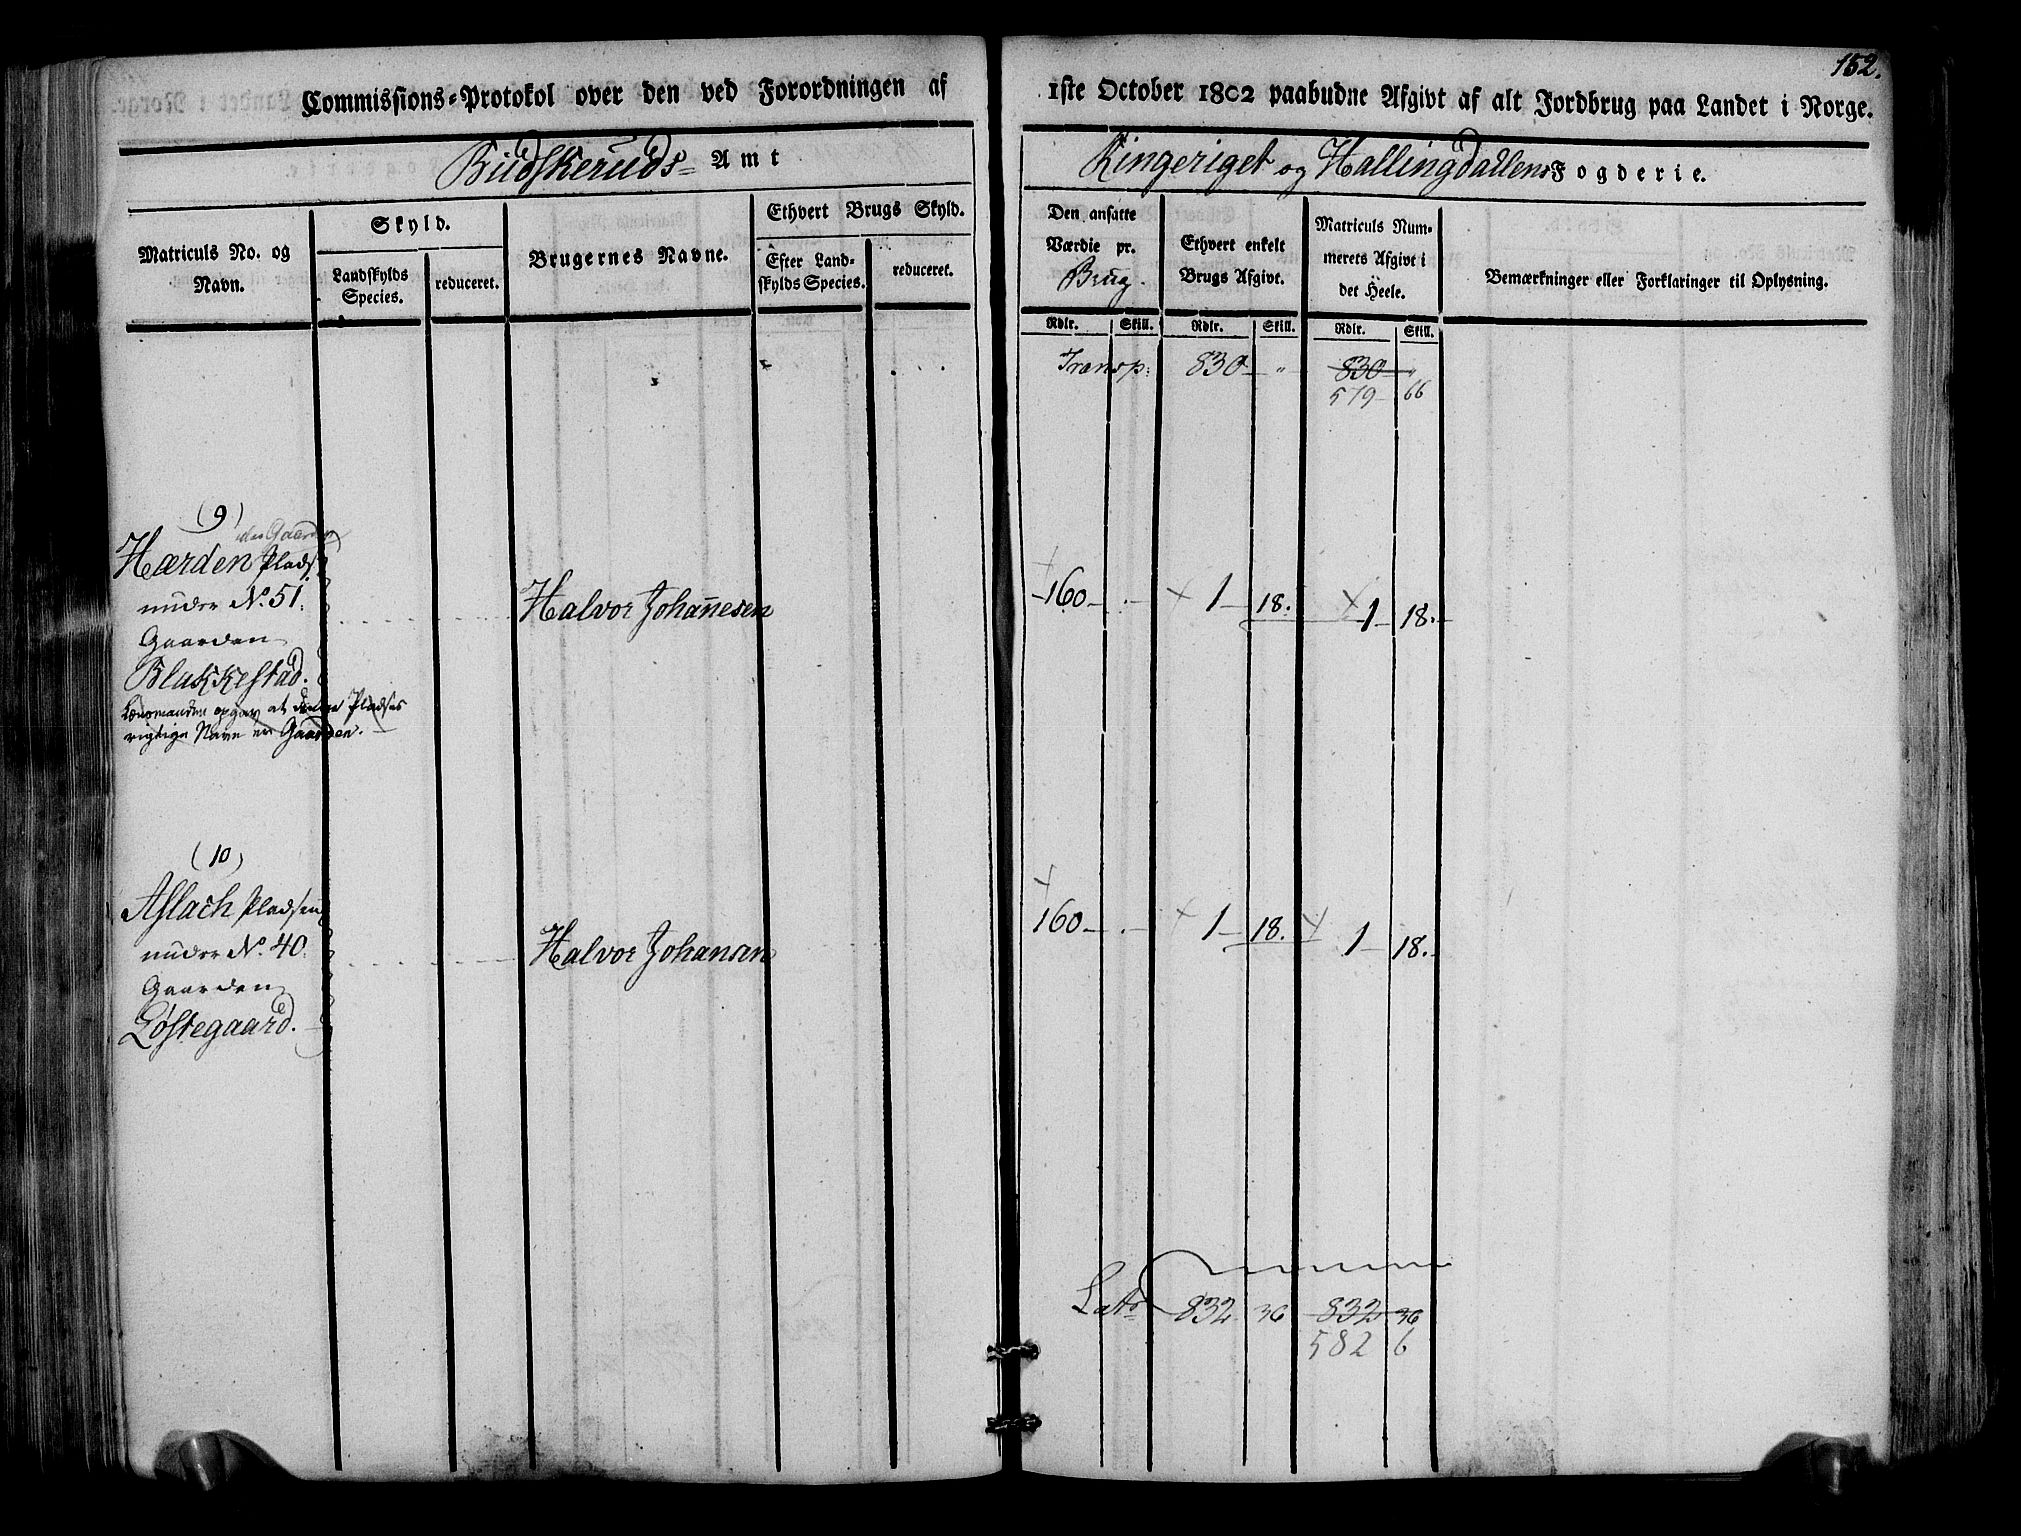 152.
Commissions-Protokol over den ved Forordningen af 1ste October 1802 paabudne Afgivt af alt Jordbrug paa Landet i Norge.
Budskeruds Amt
Ringeriget og Hallingdallens Fogderie.
Matriculs No. og Navn.
Skyld.
Landskylds Species.
reduceret.
Brugernes Navne.
Ethvert Brugs Skyld.
Efter Landskylds Species.
reduceret.
Den ansatte Værdie pr. Brug.
Ethvert enkelt Brugs Afgivt.
Matriculs Nummerets Afgivt i det Heele.
Bemærkninger eller Forklaringer til Oplysning.
Rdlr. Skill. Rdlr. Skill. Rdlr. Skill.
Transp: 830 — " 830 — "
579 — 66
(9)
Hærden Plads
under No. 51.
Gaarden
Blakkestad.
Lænsmanden opgav at denne Pladses
rigtige Navn er Gaarden.
Halvor Johannesen
160 — . — 1 — 18. 1 — 18.
(10)
Aslach Pladsen
under No. 40.
Gaarden
Løstegaard.
Halvor Johansen
160 — . — 1 — 18. 1 — 18.
Lats 832 36 832 36
582 6